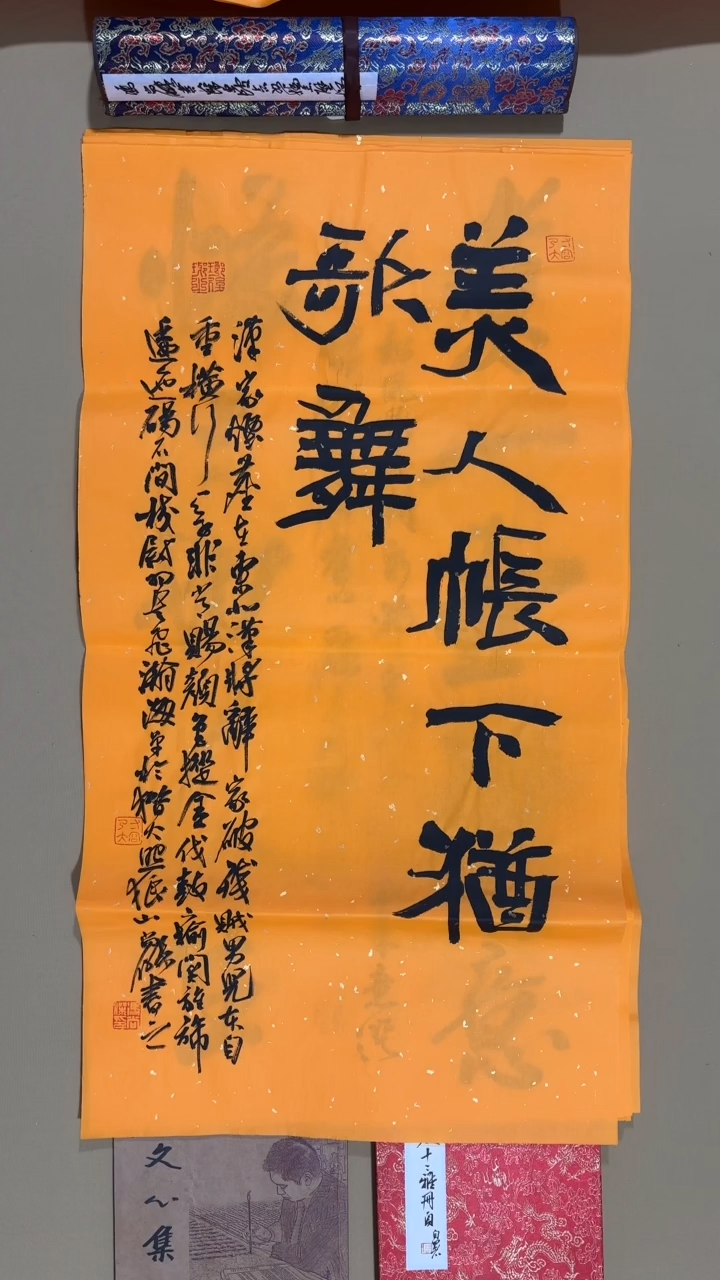 美人帳下猶
歌舞
漢家煙塵在東北漢將辭家破殘賊男兒本自
重橫行天子非常賜顏色摐金伐鼓榆關旌旆
逶迤碣石間校尉羽書飛瀚海單于獵火照狼山書之
文心集
十三